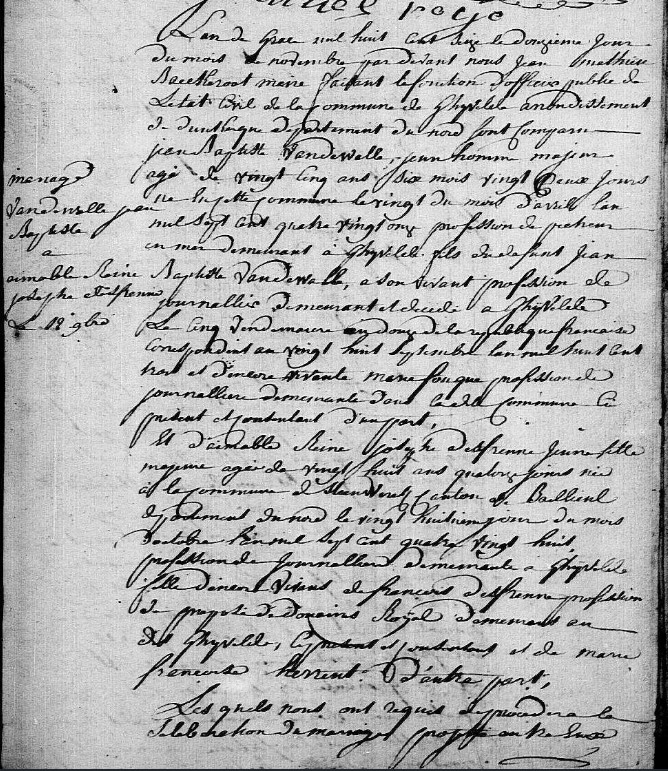 L'an de Grace mil huit Cent Seize le douzieme Jour
du mois de novembre par devant nous Jean mathieu
Baeckeroot maire faisant le fonction d'officier public de
L'etat Civil de la Commune de Ghyvelde arrondissement
de dunkerque departement du nord sont Comparu
jean Baptiste Vandewalle, jeun homme majeur
agé de vingt Cinq ans Six mois vingt deux Jours
né en jette Commune le vingt du mois d'avril l'an
mil Sept Cent quatre vingt onze profession de pecheur
en mer demeurant à Ghyvelde fils du defunt Jean
Baptiste Vandewalle, a Son vivant profession de
journallier demeurant et decedé a Ghyvelde
Le Cinq Vendemiaire an douze de la republique francaise
Correspondant au vingt huit Septembre l'an mil huit Cent
trois et d'encore vivante marie fouque profession de
journalliere demeurante dans la dite Commune Ci
présent et Consentant d'un part,
Et d'aimable Reine Josephe desfrenne Jeune fille
majeure agée de vingt huit ans quatorze Jours née
à la Commune de Canton de Bailleul
departement du nord le vingt huitieme jour du mois
d'octobre l'an mil Sept Cent quatre vingt huit,
profession de journalliere demeurante a Ghyvelde
fille d'encore vivans de francois desfrenne profession
de de domains Royal demeurans au
dit Ghyvelde, Ci présent et Consentans et de marie
francoise d'autre part,
Les quels nous ont requis de procéder a la
Celebration du mariage projetté entre Eux
mariage
Vandewelle jean
Baptiste
a
aimable Reine
josephe desfrenne
Le 12 9bre